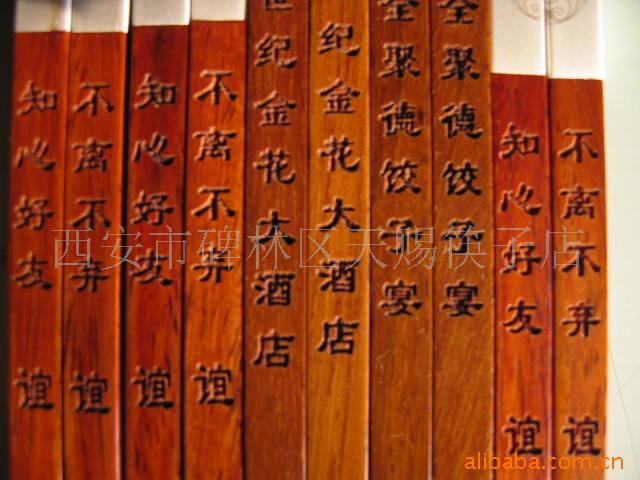 知心好友 谊
不离不弃 谊
知心好友 谊
不离不弃 谊
世纪金花大酒店
纪金花大酒店
全聚德饺子宴
全聚德饺子宴
知心好友 谊
不离不弃 谊
西安市碑林区天赐筷子店
alibaba.com.cn